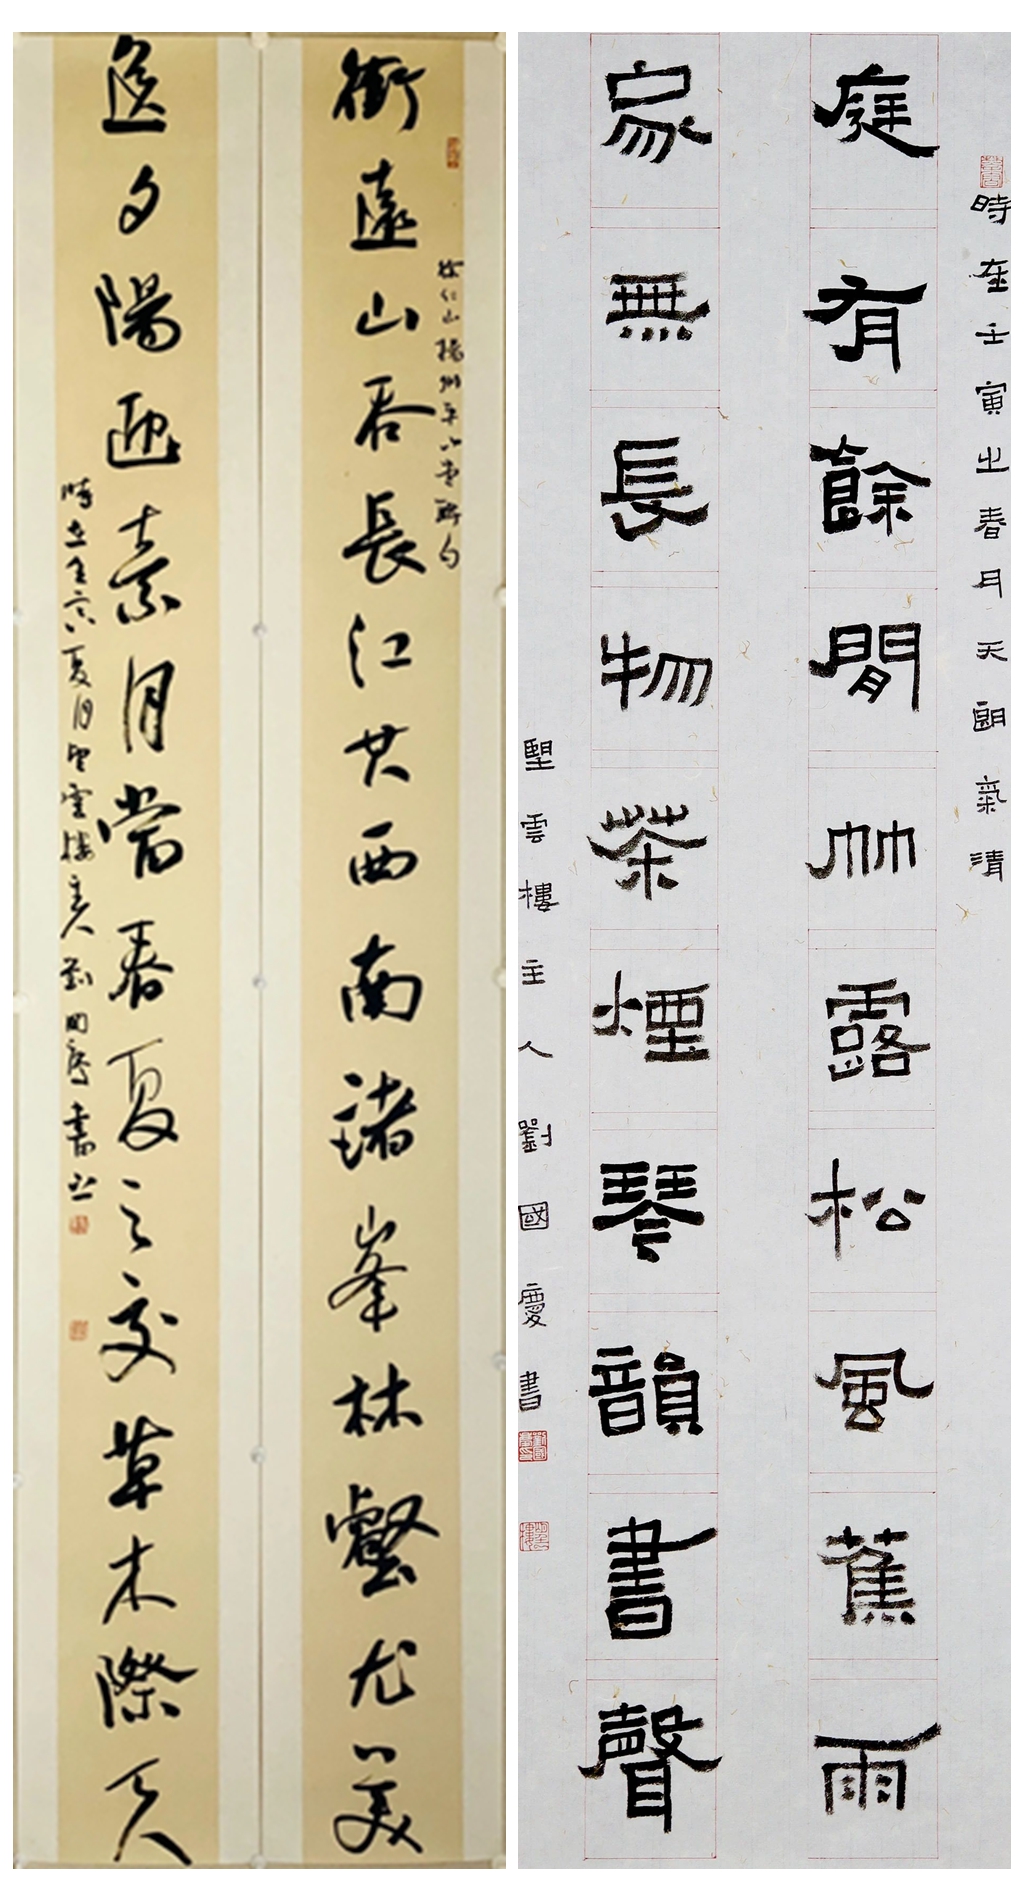 徐仁山揚州平山堂聯句
銜遠山吞長江其西南諸峯林壑尤美
送夕陽迎素月當春夏之交草木際天
時在壬寅夏月望雲樓主人劉國慶書
時在壬寅之春月天朗氣清
庭有餘閒竹露松風蕉雨
家無長物茶煙琴韻書聲
望雲樓主人劉國慶書